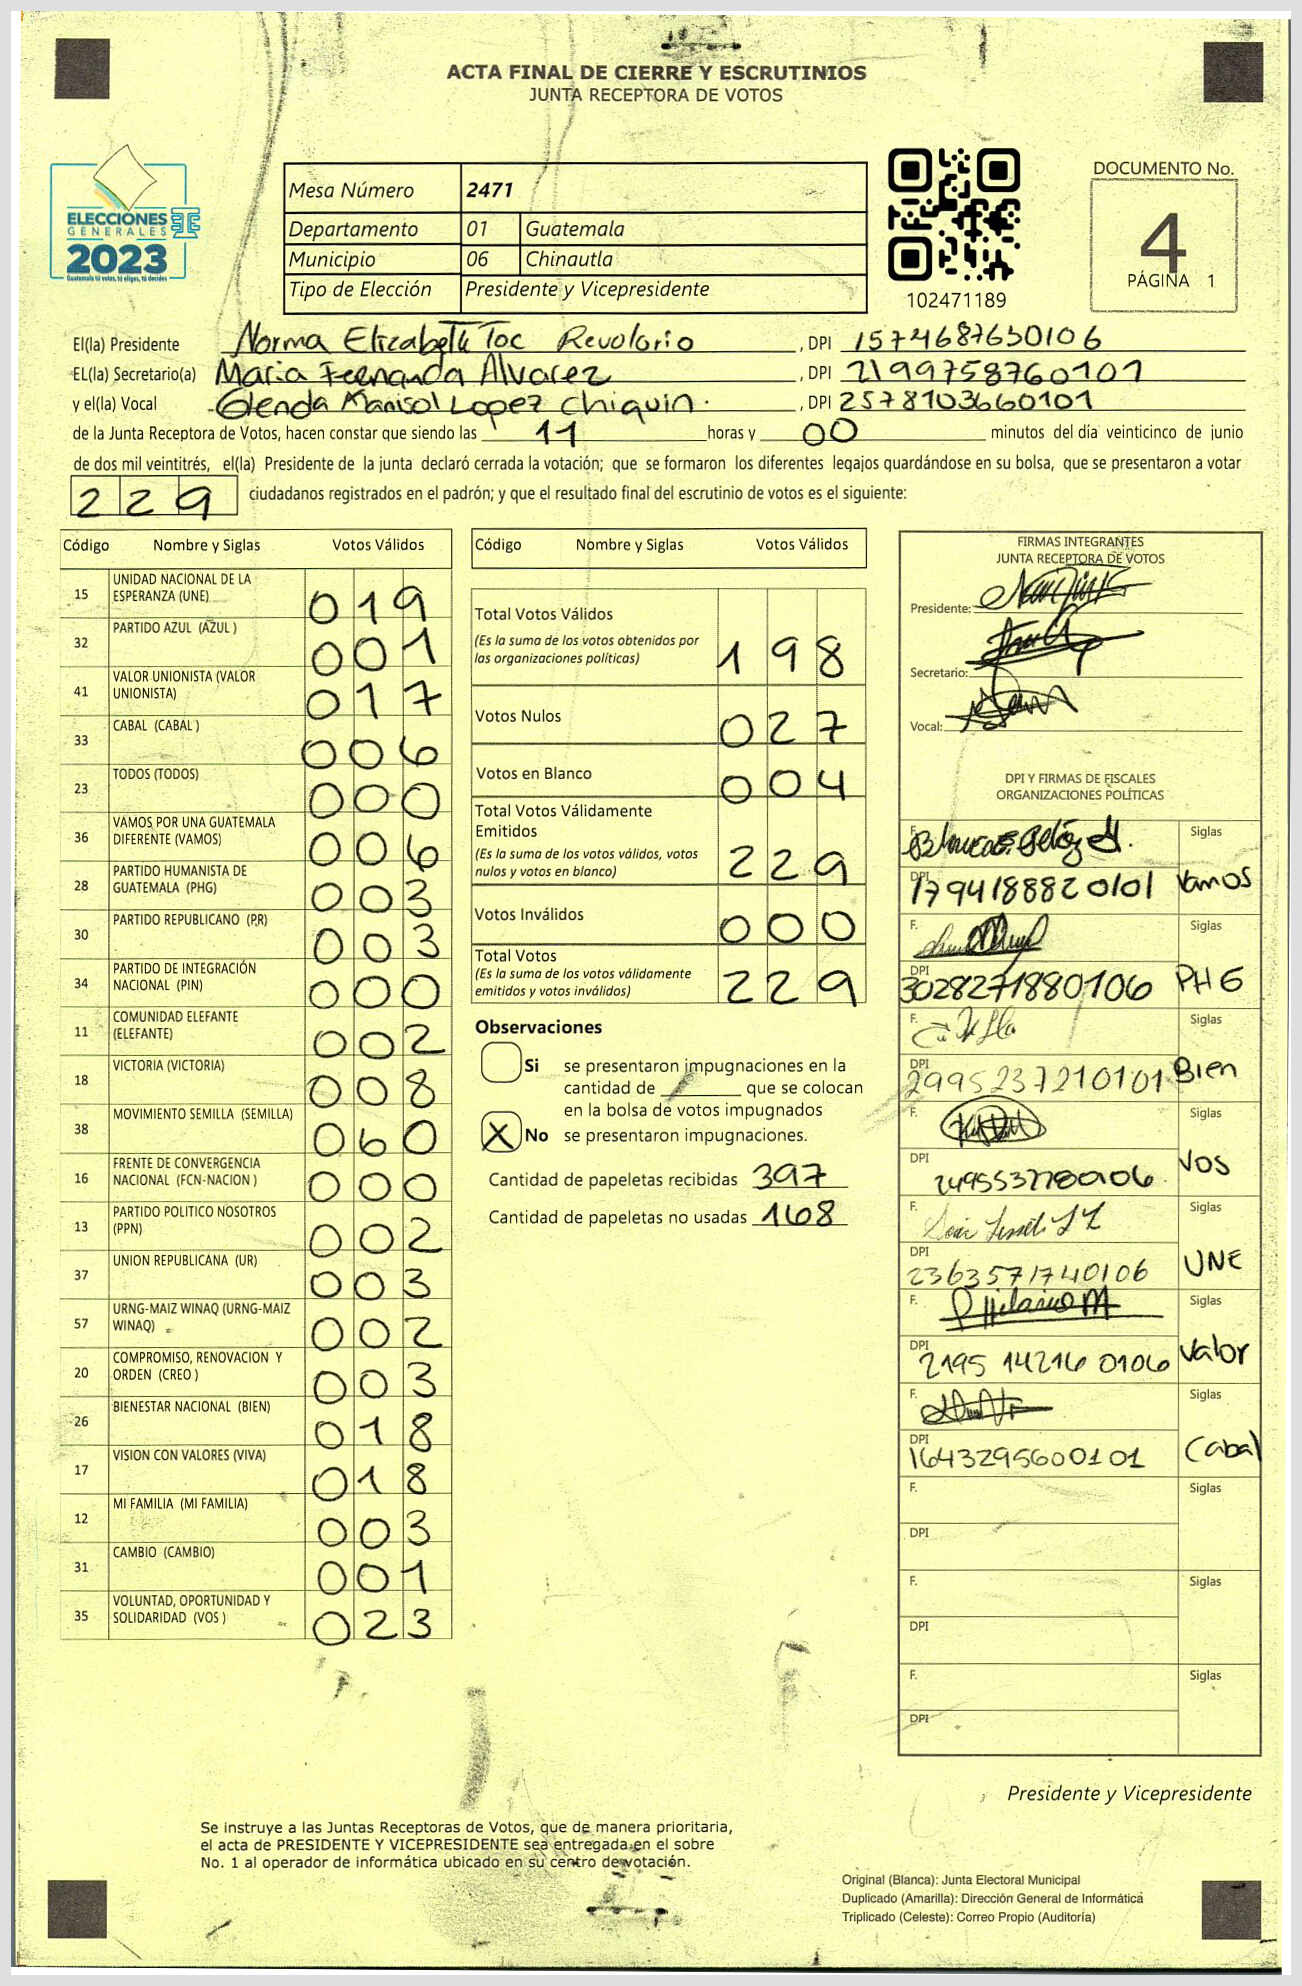 ACTA FINAL DE CIERRE Y ESCRUTINIOS
JUNTA RECEPTORA DE VOTOS
ELECCIONES
GENERALES
2023
Guatemala tú votas, tú eliges, tú decides
Mesa Número 2471
Departamento 01 Guatemala
Municipio 06 Chinautla
Tipo de Elección Presidente y Vicepresidente
102471189
DOCUMENTO No.
4
PÁGINA 1
El(la) Presidente Norma Elizabeth Toc Revolorio , DPI 1574687630106
EL(la) Secretario(a) Maria Fernanda Alvarez , DPI 2199758760101
y el(la) Vocal Glenda Marisol Lopez Chiquin. , DPI 2578103660101
de la Junta Receptora de Votos, hacen constar que siendo las 11 horas y 00 minutos del día veinticinco de junio
de dos mil veintitrés, el(la) Presidente de la junta declaró cerrada la votación; que se formaron los diferentes legajos quardándose en su bolsa, que se presentaron a votar
229 ciudadanos registrados en el padrón; y que el resultado final del escrutinio de votos es el siguiente:
Código Nombre y Siglas Votos Válidos
15 UNIDAD NACIONAL DE LA ESPERANZA (UNE) 019
32 PARTIDO AZUL (AZUL ) 001
41 VALOR UNIONISTA (VALOR UNIONISTA) 017
33 CABAL (CABAL ) 006
23 TODOS (TODOS) 000
36 VAMOS POR UNA GUATEMALA DIFERENTE (VAMOS) 006
28 PARTIDO HUMANISTA DE GUATEMALA (PHG) 003
30 PARTIDO REPUBLICANO (PR) 003
34 PARTIDO DE INTEGRACIÓN NACIONAL (PIN) 000
11 COMUNIDAD ELEFANTE (ELEFANTE) 002
18 VICTORIA (VICTORIA) 008
38 MOVIMIENTO SEMILLA (SEMILLA) 060
16 FRENTE DE CONVERGENCIA NACIONAL (FCN-NACION ) 000
13 PARTIDO POLITICO NOSOTROS (PPN) 002
37 UNION REPUBLICANA (UR) 003
57 URNG-MAIZ WINAQ (URNG-MAIZ WINAQ) 002
20 COMPROMISO, RENOVACION Y ORDEN (CREO ) 003
26 BIENESTAR NACIONAL (BIEN) 018
17 VISION CON VALORES (VIVA) 018
12 MI FAMILIA (MI FAMILIA) 003
31 CAMBIO (CAMBIO) 001
35 VOLUNTAD, OPORTUNIDAD Y SOLIDARIDAD (VOS ) 023
Código Nombre y Siglas Votos Válidos
Total Votos Válidos
(Es la suma de los votos obtenidos por
las organizaciones políticas) 198
Votos Nulos 027
Votos en Blanco 004
Total Votos Válidamente
Emitidos
(Es la suma de los votos válidos, votos
nulos y votos en blanco) 229
Votos Inválidos 000
Total Votos
(Es la suma de los votos válidamente
emitidos y votos inválidos) 229
Observaciones
Si se presentaron impugnaciones en la
cantidad de ______ que se colocan
en la bolsa de votos impugnados
X No se presentaron impugnaciones.
Cantidad de papeletas recibidas 397
Cantidad de papeletas no usadas 168
FIRMAS INTEGRANTES
JUNTA RECEPTORA DE VOTOS
Presidente:
Secretario:
Vocal:
DPI Y FIRMAS DE FISCALES
ORGANIZACIONES POLÍTICAS
F. Siglas
DPI 1794188820101 Vamos
F. Siglas
DPI 3028271880106 PHG
F. Siglas
DPI 2995237210101 Bien
F. Siglas
DPI 2495537780106 VOS
F. Siglas
DPI 2363571740106 UNE
F. Siglas
DPI 2195 14216 0106 Valor
F. Siglas
DPI 1643295600101 Cabal
F. Siglas
DPI
F. Siglas
DPI
F. Siglas
DPI
Presidente y Vicepresidente
Se instruye a las Juntas Receptoras de Votos, que de manera prioritaria,
el acta de PRESIDENTE Y VICEPRESIDENTE sea entregada en el sobre
No. 1 al operador de informática ubicado en su centro de votación.
Original (Blanca): Junta Electoral Municipal
Duplicado (Amarilla): Dirección General de Informática
Triplicado (Celeste): Correo Propio (Auditoría)